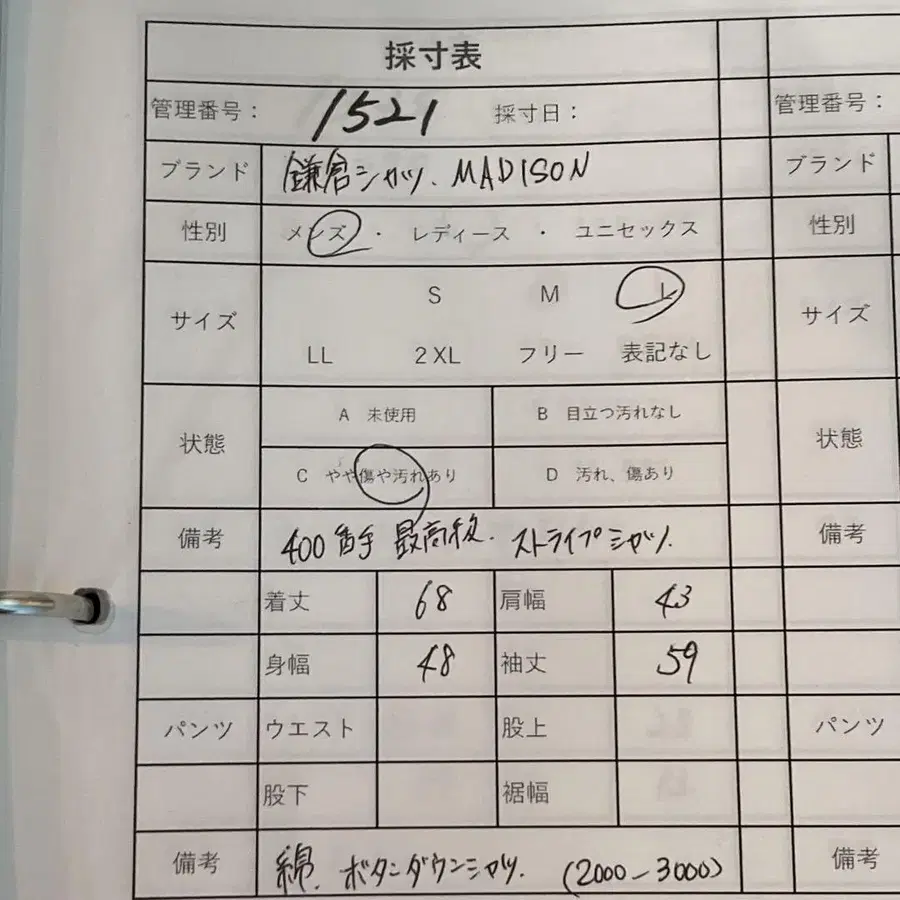 採寸表
管理番号： 1521 採寸日：
ブランド 鎌倉シャツ. MADISON
性別 メンズ ・ レディース ・ ユニセックス
サイズ S M L
LL 2XL フリー 表記なし
状態 A 未使用 B 目立つ汚れなし
C やや傷や汚れあり D 汚れ、傷あり
備考 400番手 最高級. ストライプシャツ.
着丈 68 肩幅 43
身幅 48 袖丈 59
パンツ ウエスト 股上
股下 裾幅
備考 綿. ボタンダウンシャツ. (2000-3000)
管理番号：
ブランド
性別
サイズ
状態
備考
パンツ
備考